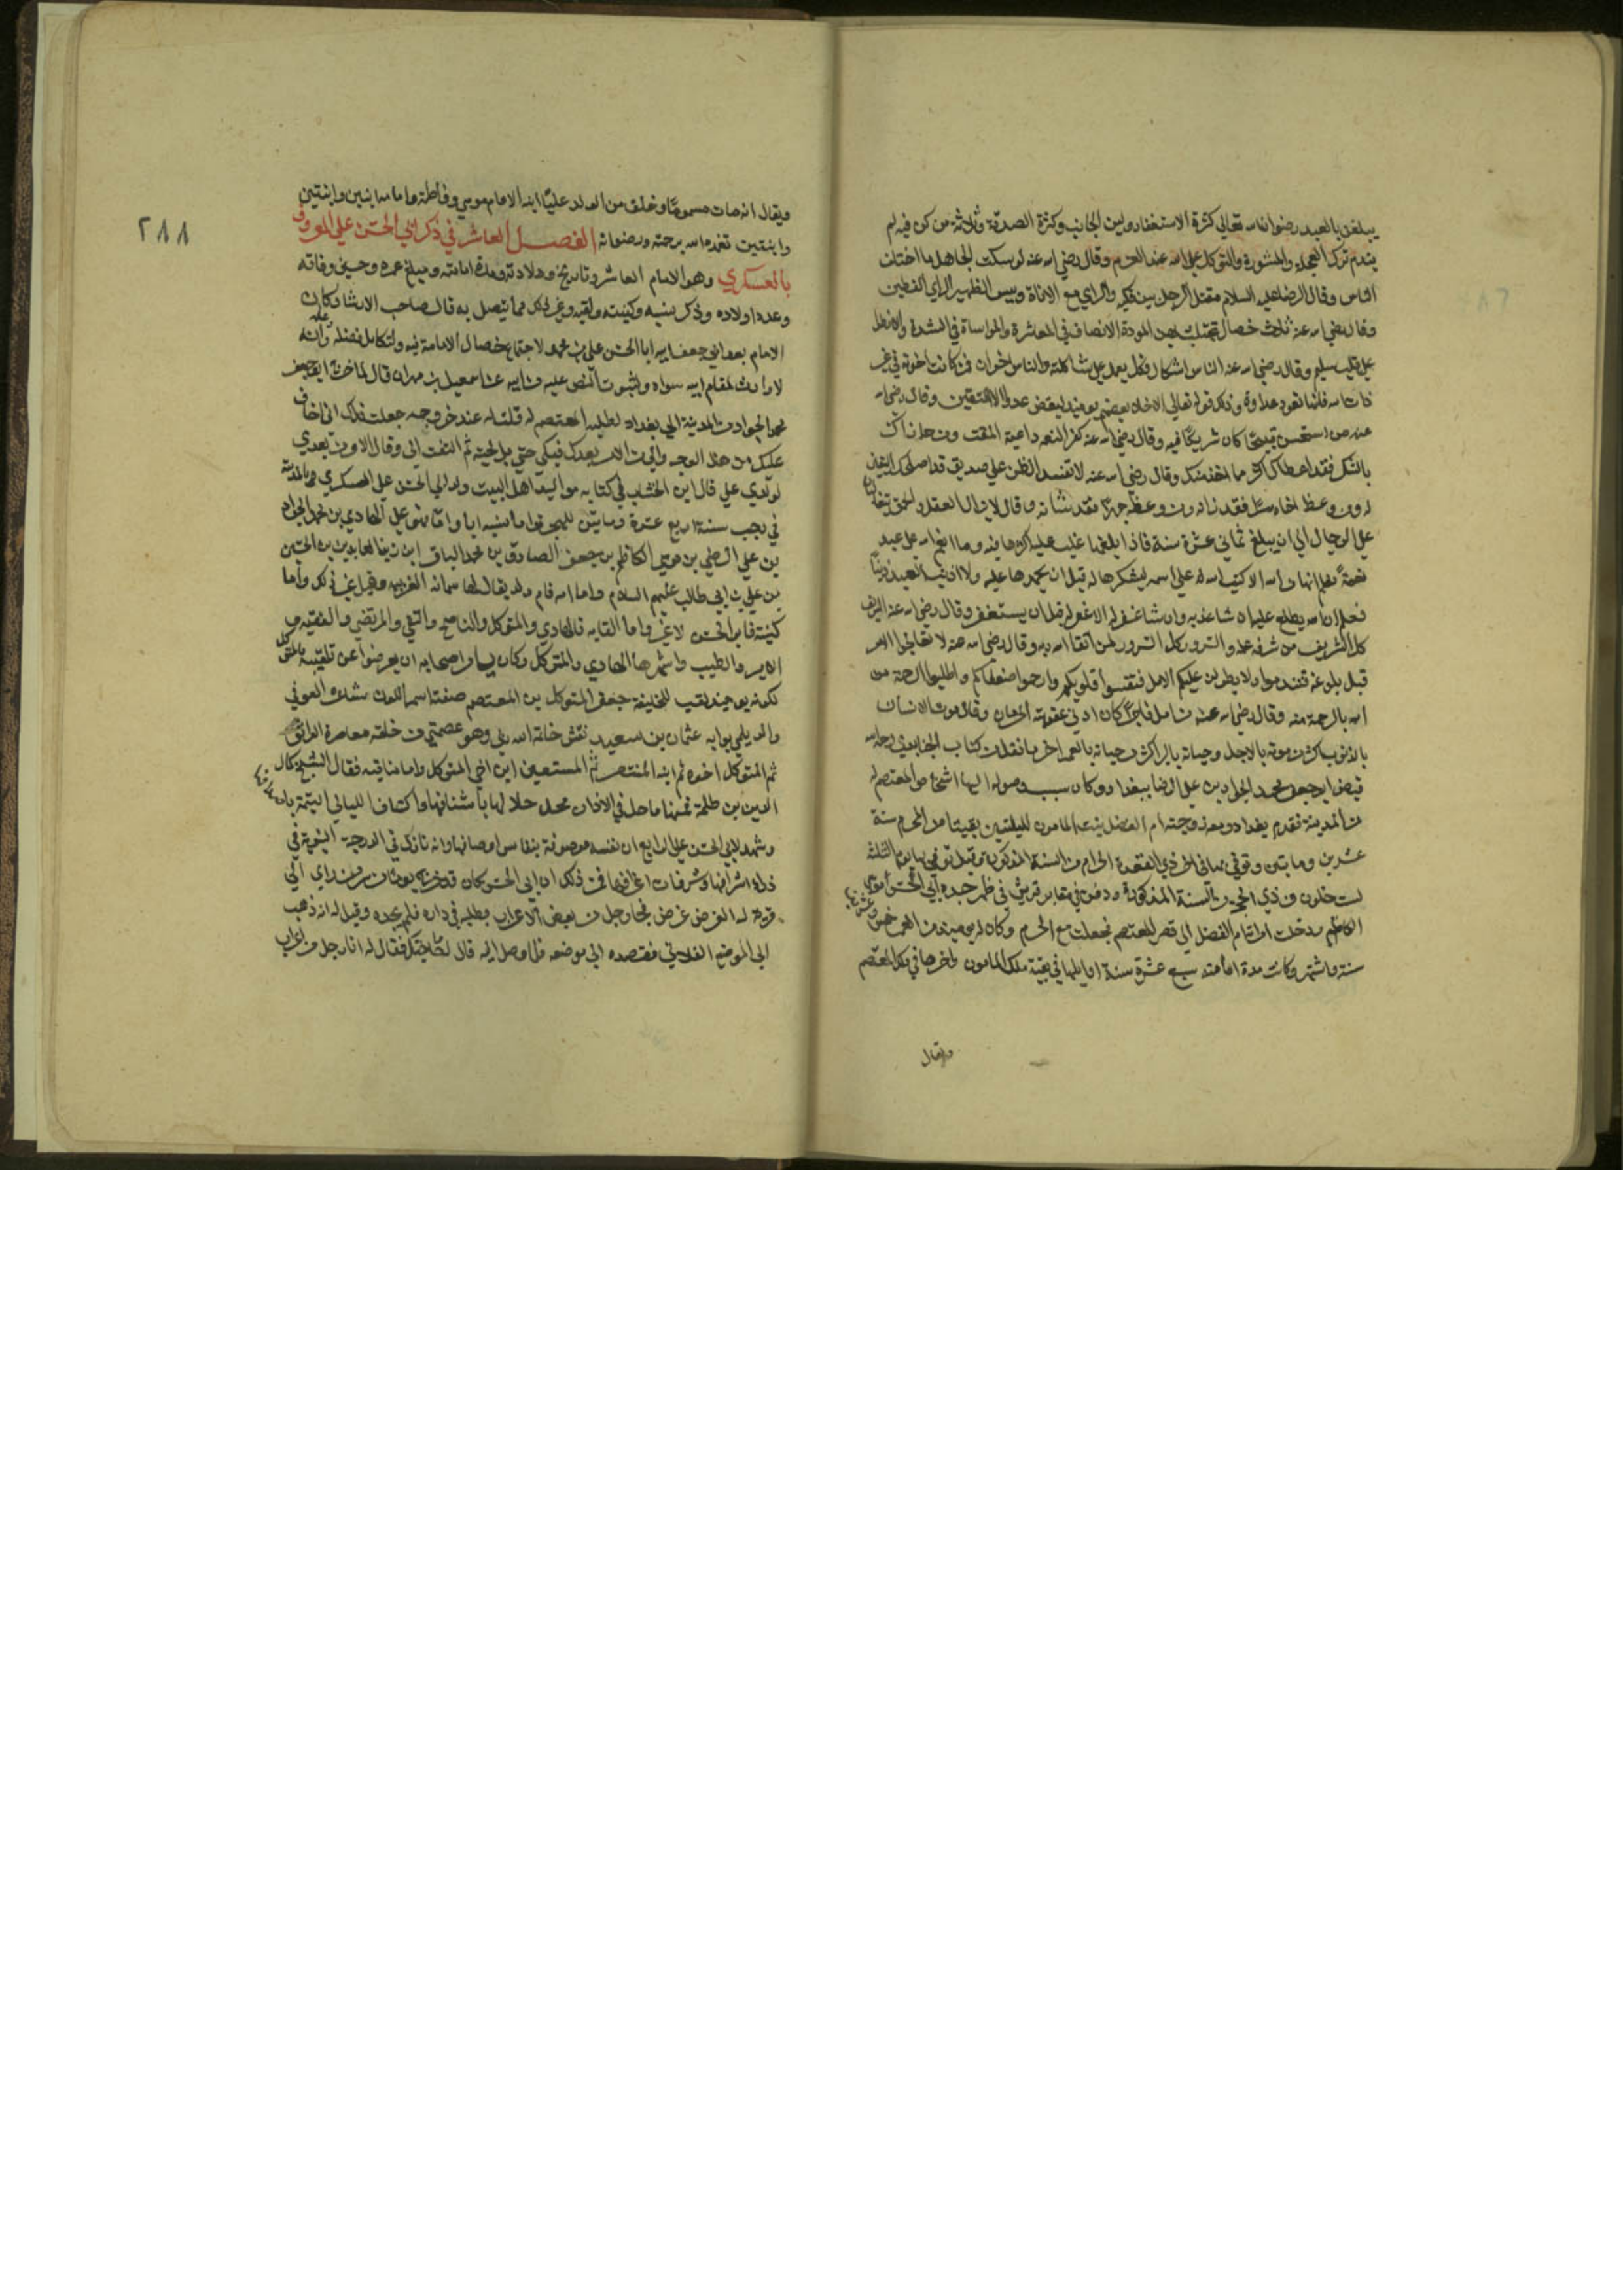 يبلغن بالعبد رضوان الله تعالى كثرة الاستغفار ولين الجانب وكثرة الصدقة وثلاثة من كن فيه لم
يندم ترك العجلة والمشورة والتوكل على الله عند العزم وقال رضي الله عنه لو سكت الجاهل ما اختلف
الناس وقال الرضا عليه السلام مقتل الرجل بين فكيه والراي مع الاناة وبيس الظهير الراي الفطير
وقال رضي الله عنه ثلاث خصال تجتلب بهن المودة الانصاف في المعاشرة والمواساة في الشدة
على قلب سليم وقال رضي الله عنه الناس اشكال وكل يعمل على شاكلته والناس اخوان فمن كانت اخوته في غير
ذات الله فانها تعود عداوة وذلك قوله تعالى الاخلاء بعضهم يوميذ لبعض عدو الا المتقين وقال رضي الله
عنه من استحسن قبيحا كان شريكا فيه وقال رضي الله عنه كفر النعمة داعية المقت ومن جازاك
بالشكر فقد اعطاك اكثر مما اخذ منك وقال رضي الله عنه لا تفسد الظن على صديق قد اصلحك اليقين
له ومن وعظ اخاه سرا فقد زانه ومن وعظه جهرا فقد شانه وقال لا يزال العقل والحمق يتغالبان
على الرجال الى ان يبلغ ثماني عشرة سنة فاذا بلغها غلب عليه اكثرهما فيه وما انعم الله على عبد
نعمة فعلم انها من الله الا كتب الله له على اسمه شكرها له قبل ان يحمده عليه ولا اذنب العبد ذنبا
فعلم ان الله يطلع عليه ان شا عذبه وان شا غفر له الا غفر له قبل ان يستغفر وقال رضي الله عنه الشريف
كل الشريف من شرفه علمه والسرور كل السرور لمن اتقا الله ربه وقال رضي الله عنه لا تعالجوا الامر
قبل بلوغه فتندموا ولا يطولن عليكم الامل فتقسوا قلوبكم وارحموا ضعفاكم واطلبوا الرحمة من
الله بالرحمة منه وقال رضي الله عنه من امل فاجرا كان ادنى عقوبته الحرمان وقال موت الانسان
بالذنوب اكثر من موته بالاجل وحياته بالبر اكثر من حياته بالعمر اخر ما نقلت كتاب الجنابذي رحمه الله
قبض ابو جعفر محمد الجواد بن علي الرضا ببغداد وكان سبب وصوله اليها اشخاص المعتصم له
من المدينة فقدم بغداد ومعه زوجته ام الفضل بنت المامون لليلتين بقيتا من المحرم سنة
عشرين ومايتين وتوفي بها في اخر ذي القعدة الحرام من السنة المذكورة وقيل توفي بها يوم الثلثا
لست خلون من ذي الحجة من السنة المذكورة ودفن في مقابر قريش في ظهر جده ابي الحسن موسى
الكاظم ودخلت امراته ام الفضل الى قصر المعتصم فجعلت مع الحرم وكان له يوميذ من العمر خمس وعشرون
سنة واشهر وكانت مدة امامته سبع عشرة سنة اوايلها في بقية ملك المامون واخرها في ملك المعتصم
ويقال
٢٨٨
ويقال انه مات مسموما وخلف من الولد عليا ابنه الامام وموسى وفاطمة وامامه ابنين وابنتين
وابنتين تغمده الله برحمته ورضوانه الفصل العاشر في ذكر ابي الحسن علي المعروف
بالعسكري وهو الامام العاشر وتاريخ ولادته ومدة امامته ومبلغ عمره وحين وفاته
وعدد اولاده وذكر نسبه وكنيته ولقبه وغير ذلك مما يتصل به قال صاحب الارشاد كان
الامام بعد ابي جعفر ابنه ابا الحسن علي بن محمد لاجتماع خصال الامامة فيه ولتكامل فضله وعلمه وانه
لا وارث لمقام ابيه سواه ولثبوت النص عليه من ابيه عن اسمعيل بن مهران قال لما خرج ابو جعفر
محمد الجواد من المدينة الى بغداد لطلبه المعتصم له قلت له عند خروجه جعلت فداك اني اخاف
عليك من هذا الوجه والى من الامر بعدك فبكى حتى بل لحيته ثم التفت الي وقال الامر من بعدي
لولدي علي قال ابن الخشاب في كتابه مواليد اهل البيت ولد ابي الحسن علي العسكري بالمدينة
في رجب سنة اربع عشرة ومايتين للهجرة واما نسبه ابا واما فهو علي الهادي بن محمد الجواد
بن علي الرضي بن موسى الكاظم بن جعفر الصادق بن محمد الباقر ابن زين العابدين بن الحسين
بن علي بن ابي طالب عليهم السلام واما امه فام ولد يقال لها سمانه المغربيه وقيل غير ذلك واما
كنيته فابو الحسن لا غير واما القابه فالهادي والمتوكل والناصح والتقي والمرتضى والفقيه و
الامير والطيب واشهرها الهادي والمتوكل وكان يامر اصحابه ان يعرضوا عن تلقيبه بالمتوكل
لكونه يوميذ لقب للخليفة جعفر المتوكل بن المعتصم صفته اسمر اللون شاعره العوفي
والديلمي بوابه عثمان بن سعيد نقش خاتمه الله ربي وهو عصمتي من خلقه معاصره الواثق
ثم المتوكل اخوه ثم ابنه المنتصر ثم المستعين ابن اخي المتوكل واما مناقبه فقال الشيخ كمال
الدين بن طلحة فمنها ما حل في الاذان محل حلاها باشنافها واكتناف الليالي اليتيمة باصدافها
وشهد لابي الحسن علي الرابع ان نفسه موصوفة بنفايس اوصافها وانه نازل في الدرجة النبوية في
ذرى اشرافها وشرفات اعرافها فمن ذلك ان ابي الحسن كان قد خرج يوما من سر من راي الى
قرية له لغرض عرض فجا رجل من بعض الاعراب يطلبه في داره فلم يجده وقيل له انه ذهب
الى الموضع الفلاني فقصده الى موضعه فلما وصل اليه قال له ما حاجتك فقال له انا رجل من اعراب